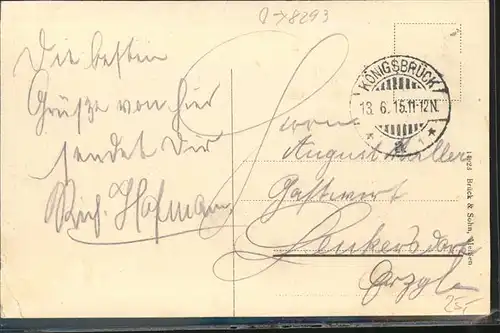 0->8293
Die besten
Grüße von hier
sendet Dir
Rich. Hofmann
KÖNIGSBRÜCK
13.6.15.11-12N.
* a *
Herrn
August Müller
Gastwirt
Lenkersdorf
Erzgb.
Brück & Sohn, Meißen
25,-